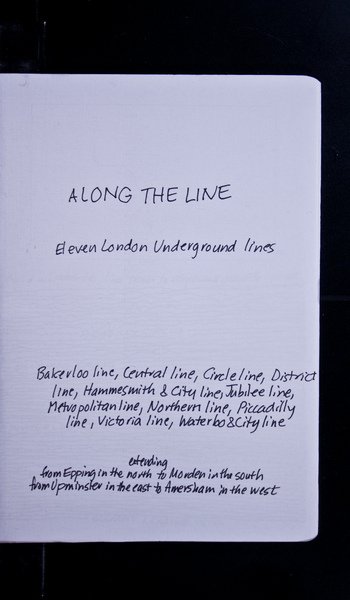 ALONG THE LINE
Eleven London Underground lines
Bakerloo line, Central line, Circle line, District
line, Hammesmith & City line, Jubilee line,
Metropolitan line, Northern line, Piccadilly
line, Victoria line, Waterloo & City line
extending
from Epping in the north to Morden in the south
from Upminster in the east to Amersham in the west